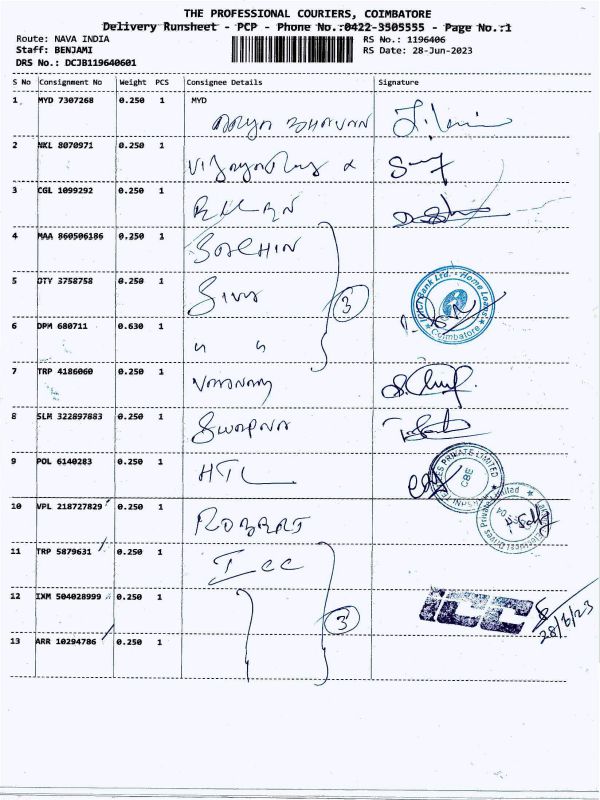 THE PROFESSIONAL COURIERS, COIMBATORE
Delivery Runsheet - PCP - Phone No.:0422-3505555 - Page No.:1
Route: NAVA INDIA
RS No.: 1196406
Staff: BENJAMI
RS Date: 28-Jun-2023
DRS No.: DCJB119640601
S No Consignment No Weight PCS Consignee Details Signature
1 MYD 7307268 0.250 1 MYD
BHAVAN
2 NKL 8070971 0.250 1
3 CGL 1099292 0.250 1
4 MAA 860506186 0.250 1
SACHIN
5 OTY 3758758 0.250 1
Siva
3
ICICI Bank Ltd. Home Loans
Coimbatore
6 DPM 680711 0.630 1
" "
7 TRP 4186060 0.250 1
8 SLM 322897883 0.250 1
Swapna
9 POL 6140283 0.250 1
HTL
PRIVATE LIMITED
CBE
10 VPL 218727829 0.250 1
ROBERT
Electrical Drives Private Limited
11 TRP 5879631 0.250 1
ICC
12 IXM 504028999 0.250 1
3
ICC
28/6/23
13 ARR 10294786 0.250 1